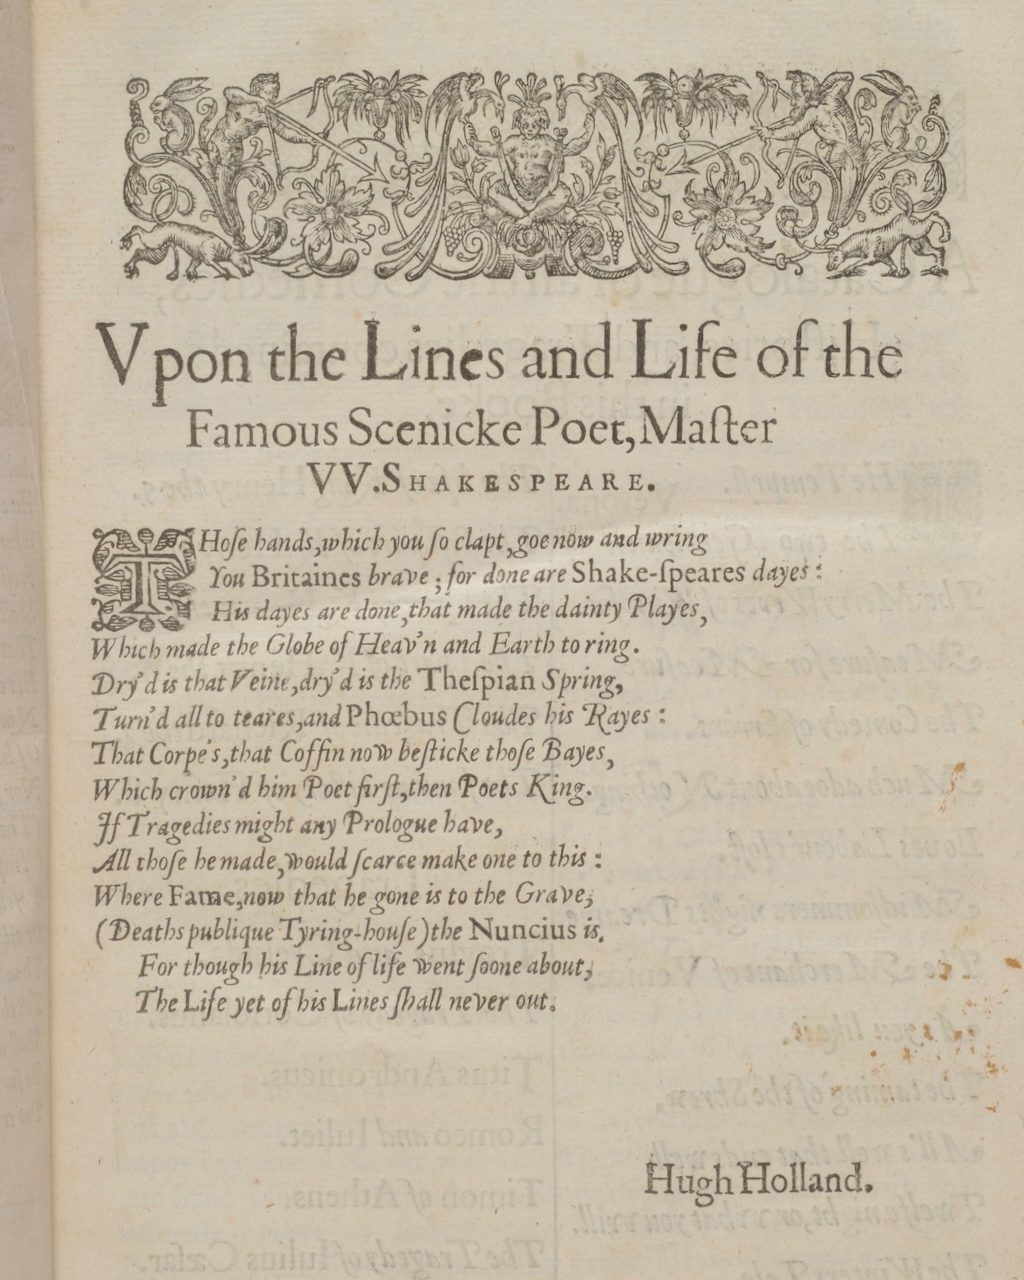 Vpon the Lines and Life of the
Famous Scenicke Poet, Maſter
VV. SHAKESPEARE.
THoſe hands, which you ſo clapt, goe now and wring
You Britaines brave; for done are Shake-ſpeares dayes:
His dayes are done, that made the dainty Playes,
Which made the Globe of Heav'n and Earth to ring.
Dry'd is that Veine, dry'd is the Theſpian Spring,
Turn'd all to teares, and Phœbus Cloudes his Rayes:
That Corpe's, that Coffin now beſticke thoſe Bayes,
Which crown'd him Poet firſt, then Poets King.
If Tragedies might any Prologue have,
All thoſe he made, would ſcarce make one to this:
Where Fame, now that he gone is to the Grave,
(Deaths publique Tyring-houſe) the Nuncius is.
For though his Line of life went ſoone about,
The Life yet of his Lines ſhall never out.
Hugh Holland.
Titus Andronicus.
Romeo and Iuliet.
Timon of Athens.
The Tragedy of Iulius Cæſar.